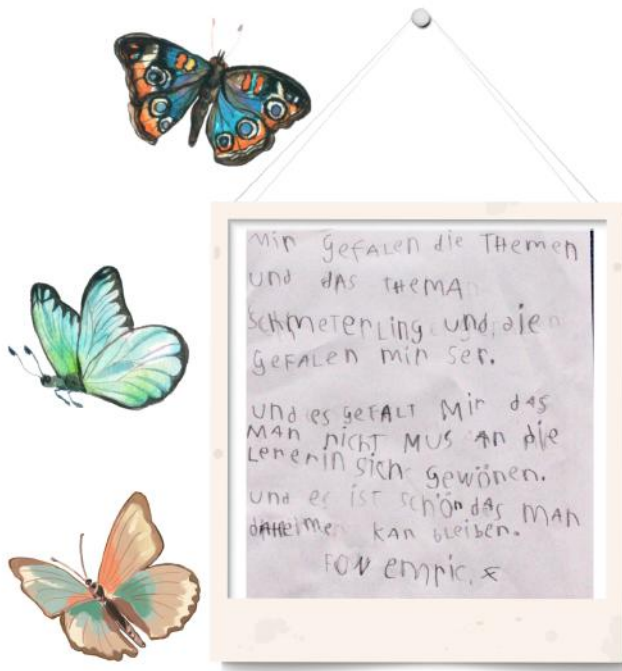 Mir GEFALEN die THEMEN
UND dAS tHEMA
SCHMETERLiNG UND
GEFALEN mir SEr.
UND es GEFALT Mir dAS
MAN nicht MUS AN die
LEHERiN sich gewönen.
UND es iST schön dAS MAN
KAN bLEiBEN.
FON